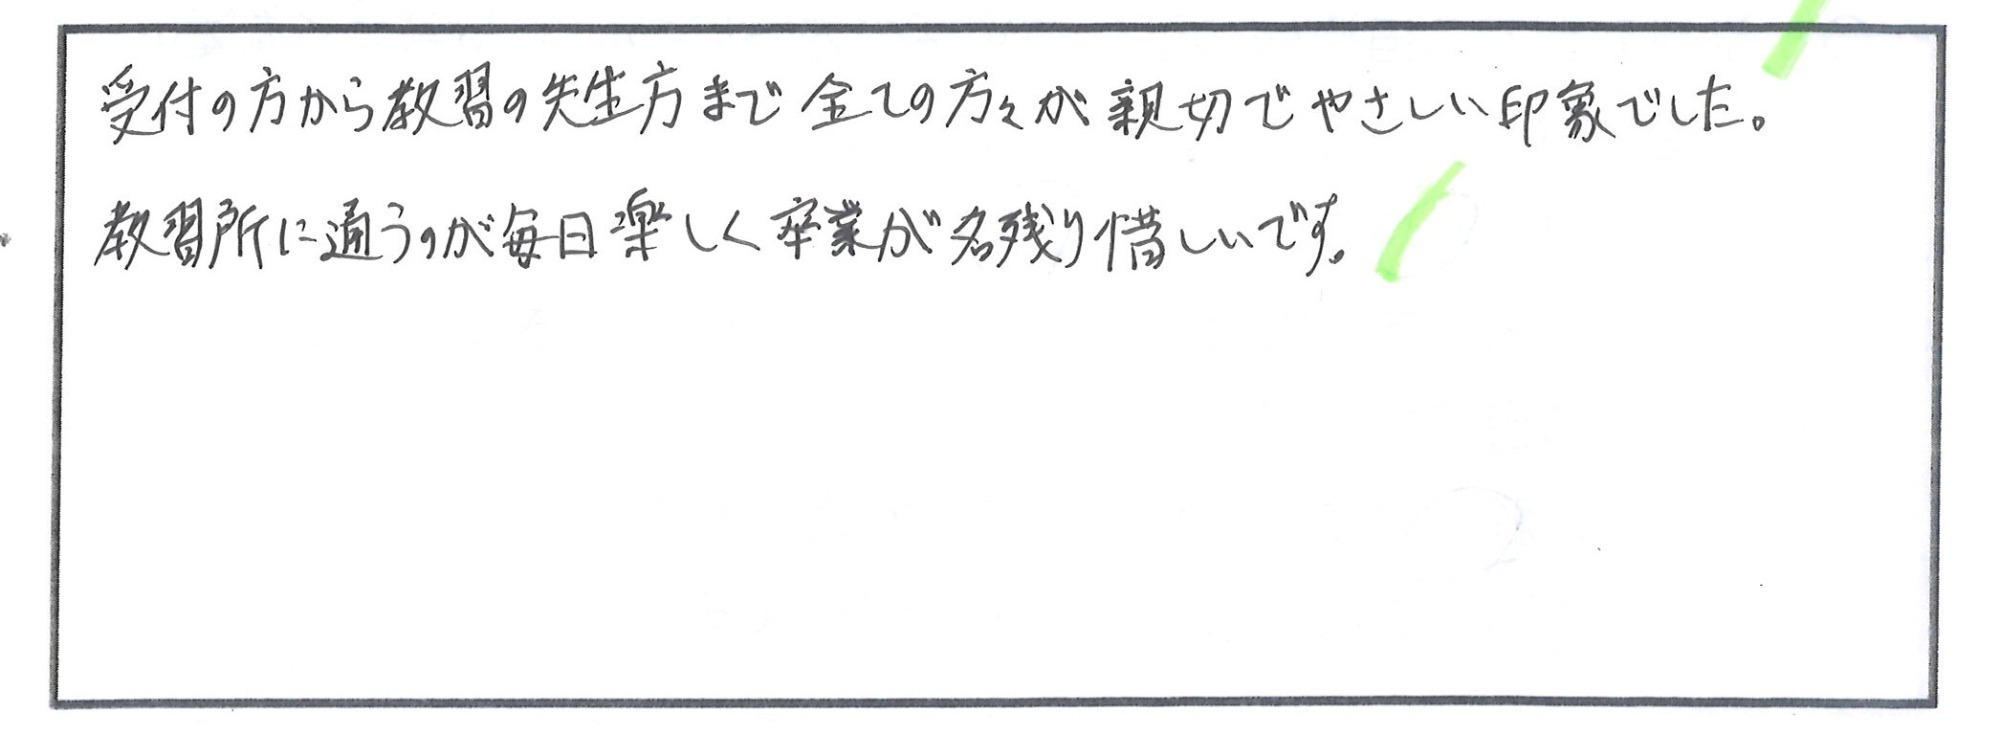 受付の方から教習の先生方まで全ての方々が親切でやさしい印象でした。
教習所に通うのが毎日楽しく卒業が名残り惜しいです。